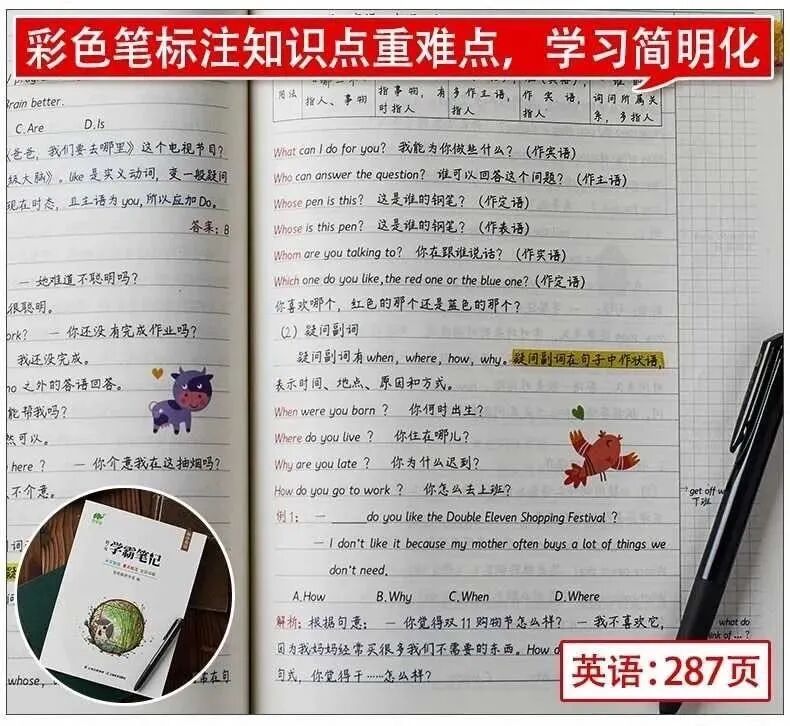 彩色笔标注知识点重难点，学习简明化
Brain better.
C.Are D.Is
《爸爸，我们要去哪里》这个电视节目？
级大脑》。like 是实义动词，变一般疑问
现在时态，且主语为 you,所以应加Do。
答案：B
— 她难道不聪明吗？
很聪明。
ork? — 你还没有完成作业吗？
我还没完成。
no 之外的答语回答。
能帮我吗？
然可以。
here ? — 你介意我在这抽烟吗？
不介意。
用法 指人、事物 指事物，有时指人 多作主语，指人 作宾语，指人 询问所属关系，多指人
What can I do for you? 我能为你做些什么？(作宾语)
Who can answer the question? 谁可以回答这个问题？(作主语)
Whose pen is this? 这是谁的钢笔？(作定语)
Whose is this pen? 这是谁的钢笔？(作表语)
Whom are you talking to? 你在跟谁说话？(作宾语)
Which one do you like,the red one or the blue one?(作定语)
你喜欢哪个，红色的那个还是蓝色的那个？
(2) 疑问副词
疑问副词有when, where, how, why。疑问副词在句子中作状语，
表示时间、地点、原因和方式。
When were you born ? 你何时出生？
Where do you live ? 你住在哪儿？
Why are you late ? 你为什么迟到？
How do you go to work ? 你怎么去上班？
例1： — ______do you like the Double Eleven Shopping Festival ?
— I don't like it because my mother often buys a lot of things we
don't need.
A.How B.Why C.When D.Where
解析：根据句意： — 你觉得双 11 购物节怎么样？ — 我不喜欢它，
因为我妈妈经常买很多我们不需要的东西。How do
句式，你觉得……怎么样？
get off w
下班
what do
nink of ... ?
学霸笔记
whose,
英语：287页